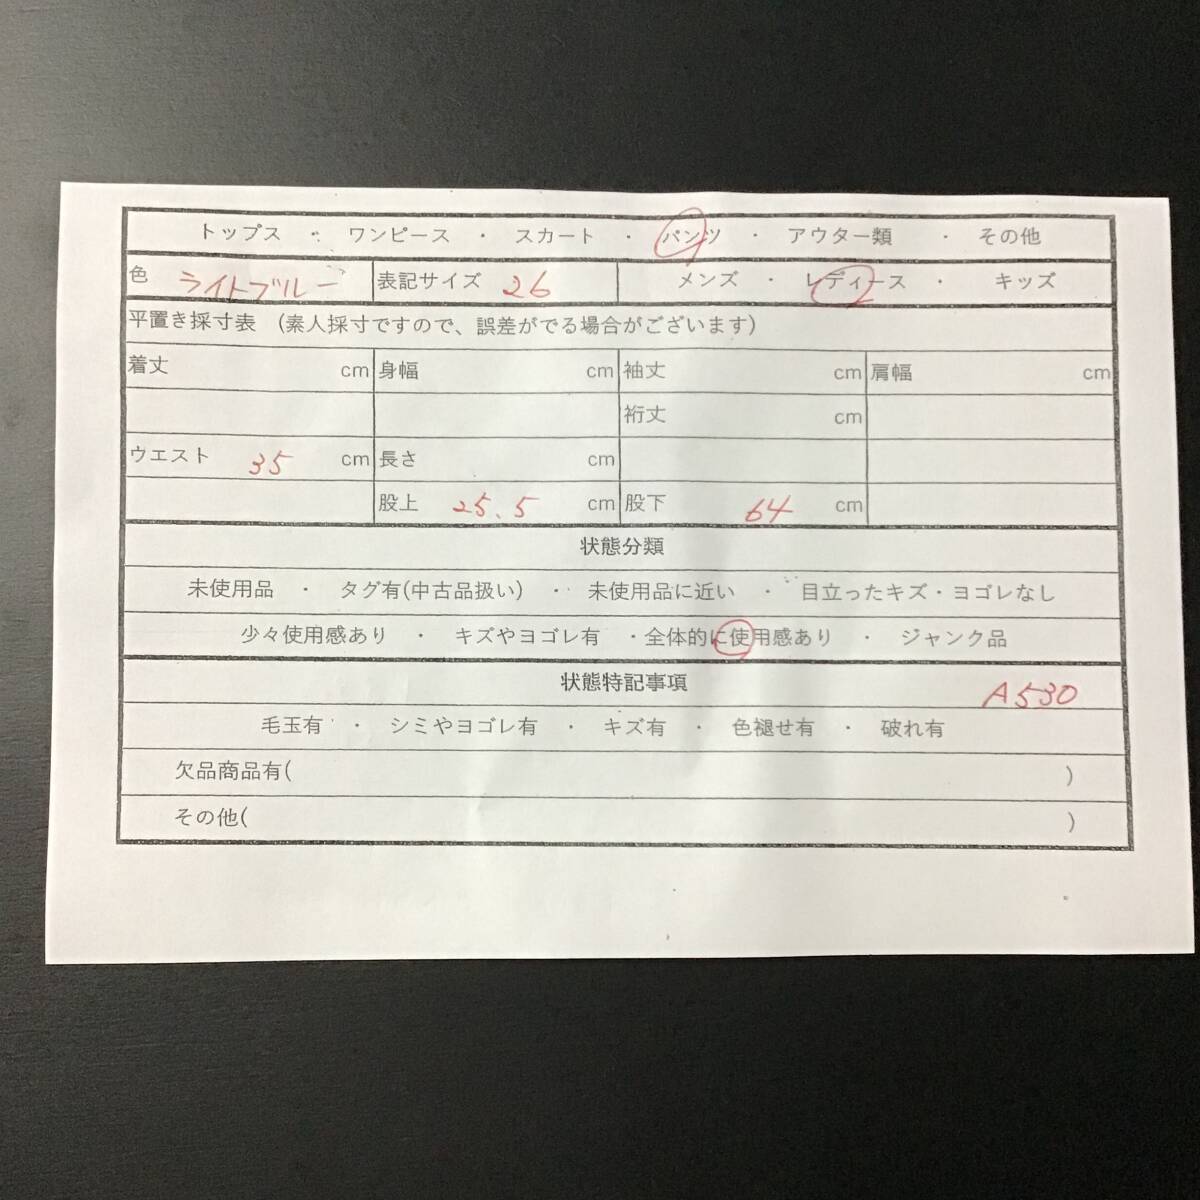 トップス ・ ワンピース ・ スカート ・ パンツ ・ アウター類 ・ その他
色 ライトブルー 表記サイズ 26 メンズ ・ レディース ・ キッズ
平置き採寸表 (素人採寸ですので、誤差がでる場合がございます)
着丈 cm 身幅 cm 袖丈 cm 肩幅 cm
裄丈 cm
ウエスト 35 cm 長さ cm
股上 25.5 cm 股下 64 cm
状態分類
未使用品 ・ タグ有(中古品扱い) ・ 未使用品に近い ・ 目立ったキズ・ヨゴレなし
少々使用感あり ・ キズやヨゴレ有 ・全体的に使用感あり ・ ジャンク品
状態特記事項 A530
毛玉有 ・ シミやヨゴレ有 ・ キズ有 ・ 色褪せ有 ・ 破れ有
欠品商品有( )
その他( )